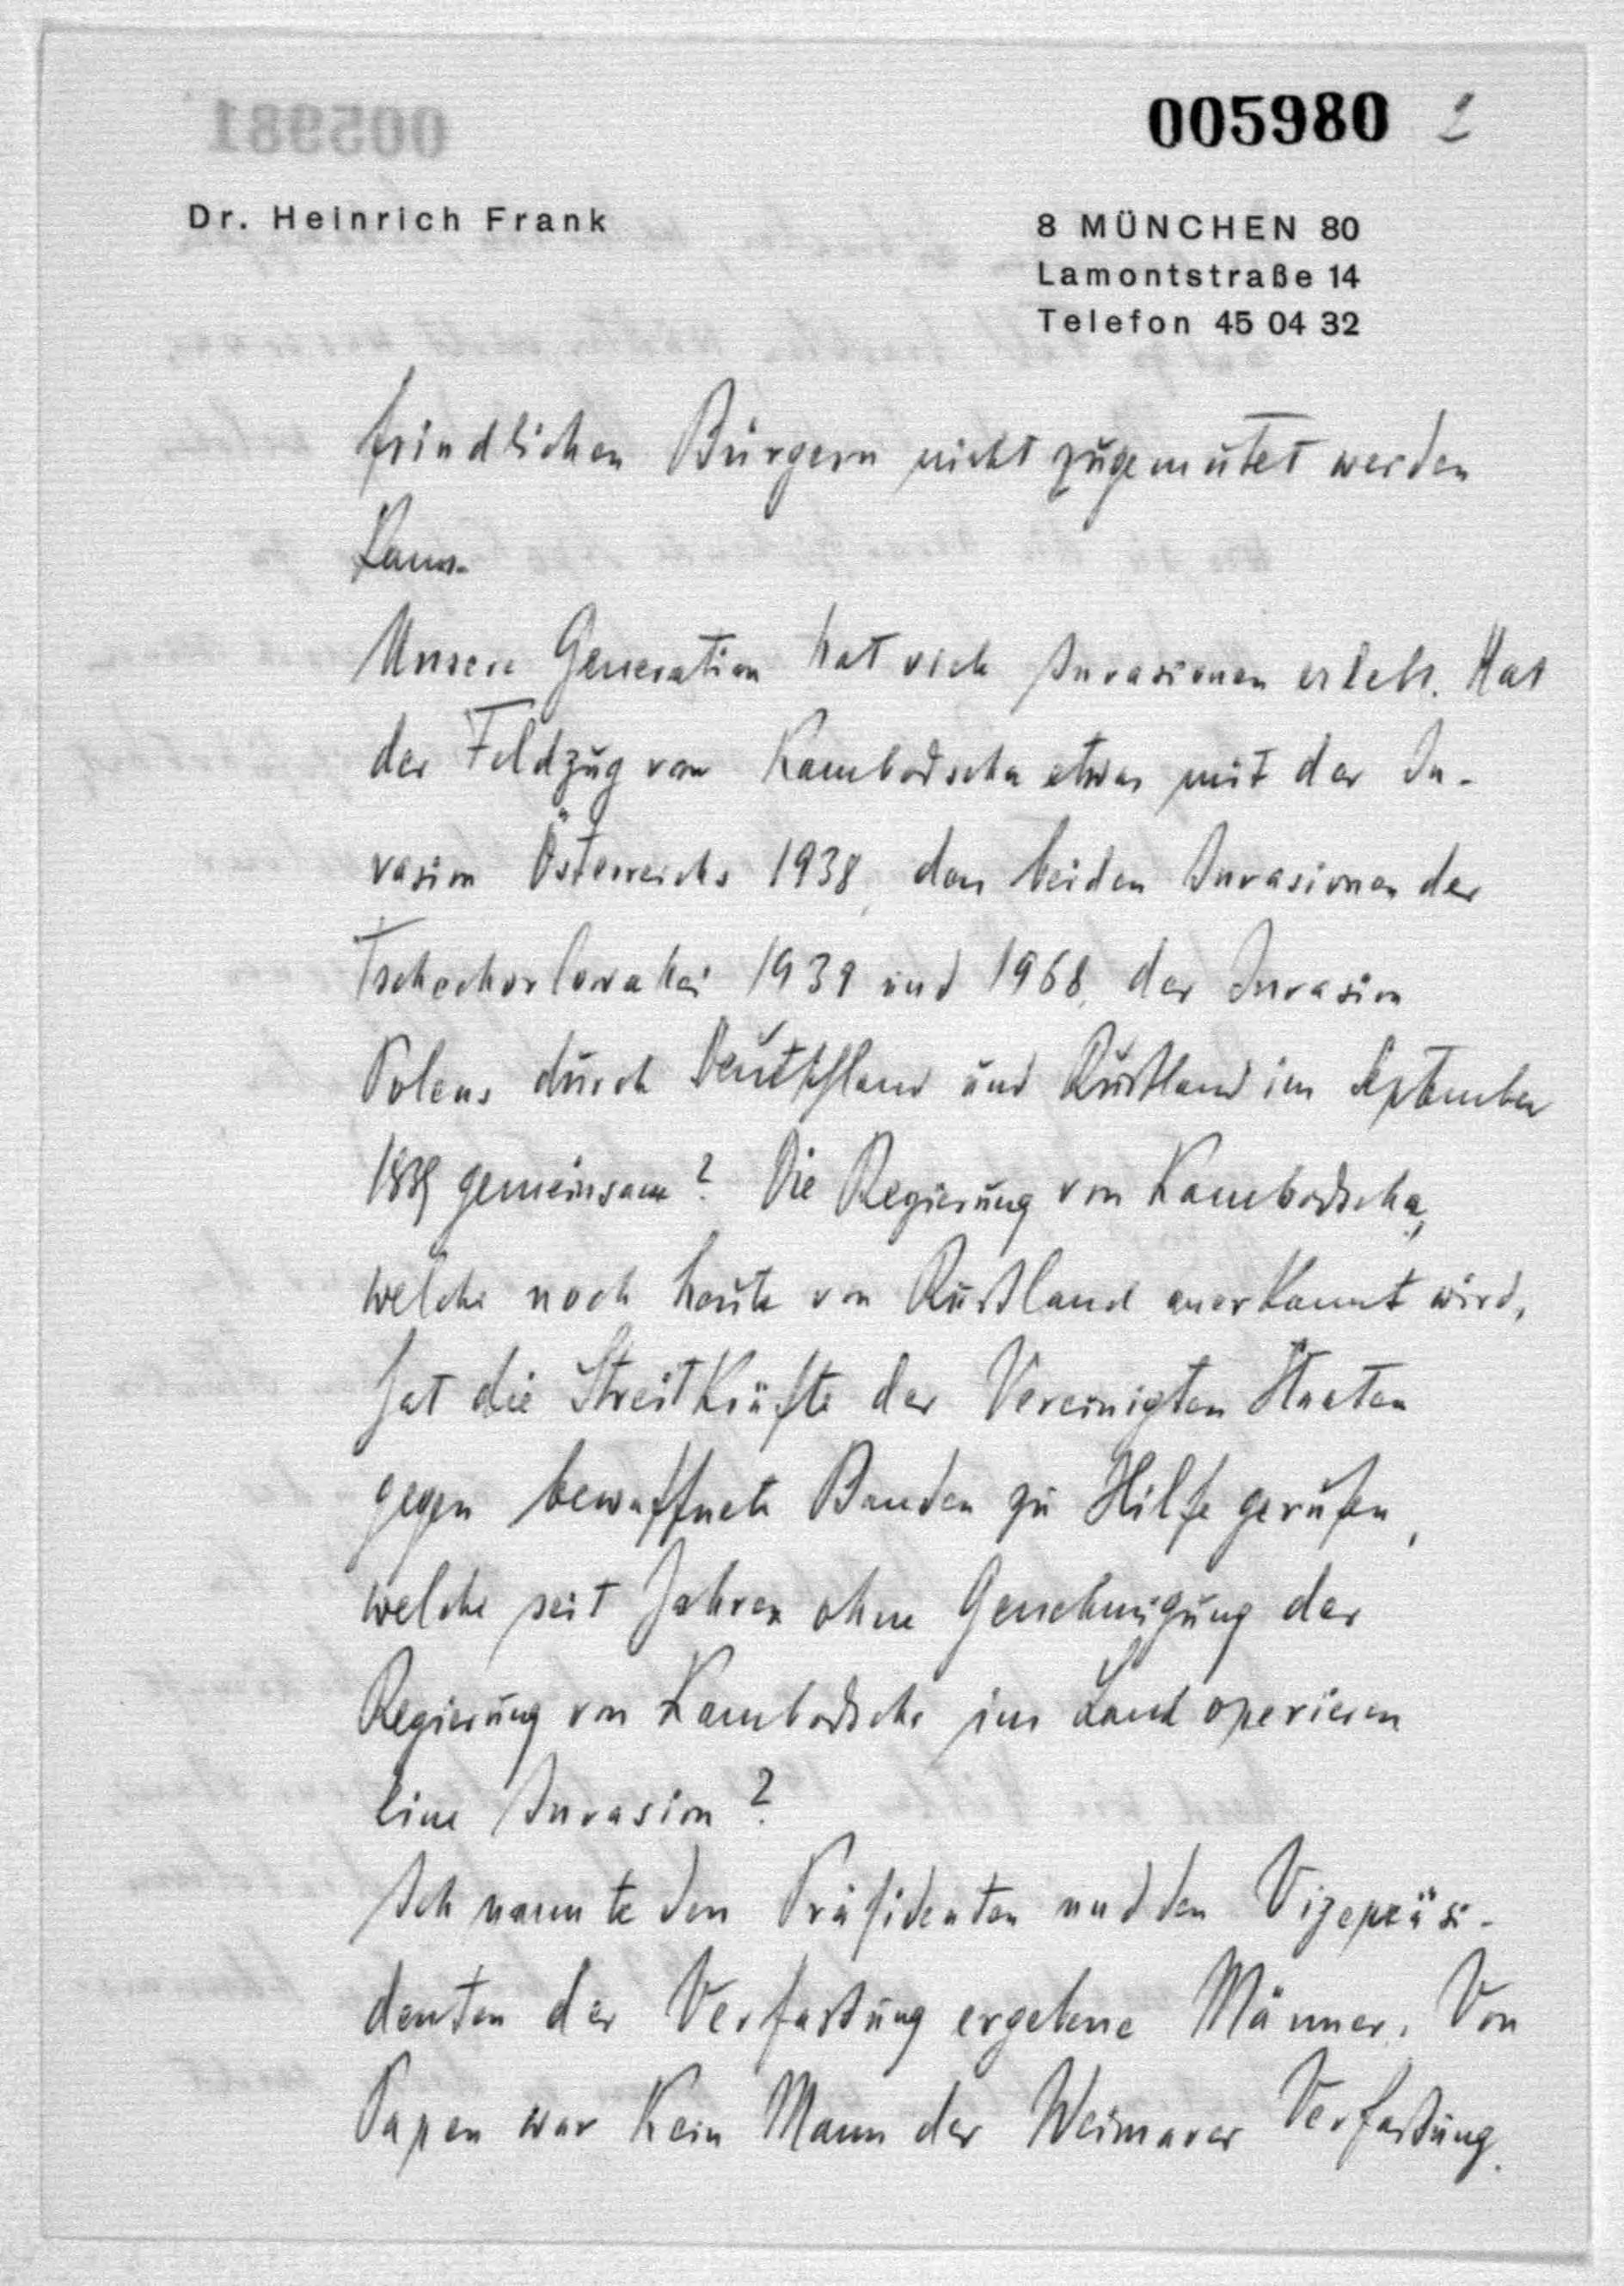 005981
005980 2
Dr. Heinrich Frank
8 MÜNCHEN 80
Lamontstraße 14
Telefon 45 04 32
friedlichen Bürgern nicht zugemutet werden
kann.
Unsere Generation hat viele Invasionen erlebt. Hat
der Feldzug von Kambodscha etwas mit der In-
vasion Österreichs 1938, den beiden Invasionen der
Tschechoslowakei 1939 und 1968, der Invasion
Polens durch Deutschland und Rußland im September
1939 gemeinsam? Die Regierung von Kambodscha,
welche noch heute von Rußland anerkannt wird,
hat die Streitkräfte der Vereinigten Staaten
gegen bewaffnete Banden zu Hilfe gerufen,
welche seit Jahren ohne Genehmigung der
Regierung von Kambodscha im Land operieren
Eine Invasion?
Ich nannte den Präsidenten und den Vizepräsi-
denten der Verfaßung ergebene Männer. Von
Papen war kein Mann der Weimarer Verfaßung.